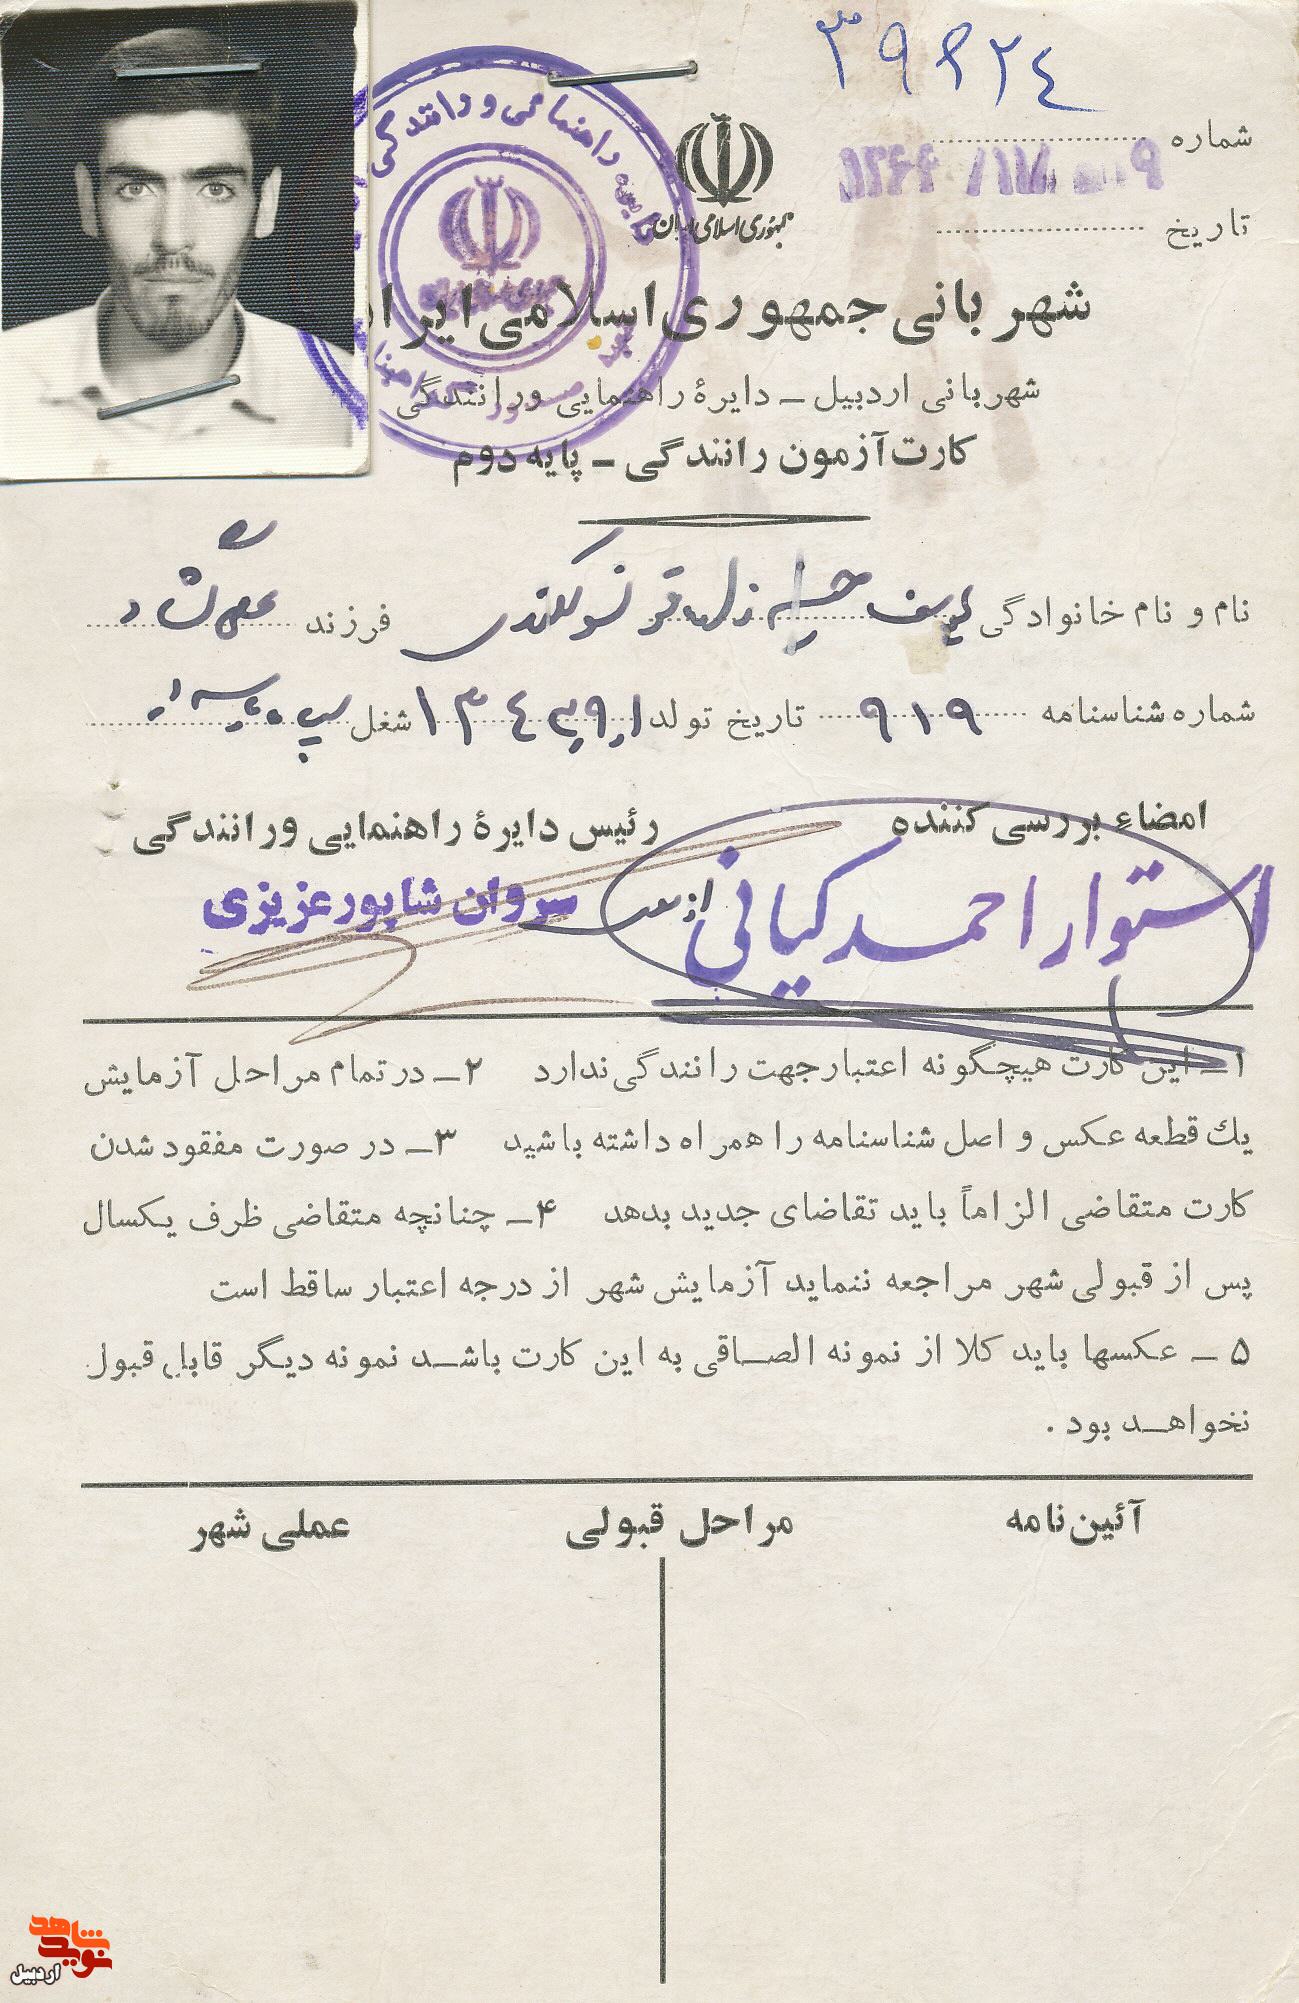 ۳۹۶۲۴
شماره
تاریخ
جمهوری اسلامی ایران
شهربانی جمهوری اسلامی ایران
شهربانی اردبیل ـ دایرهٔ راهنمایی ورانندگی
کارت آزمون رانندگی ـ پایه دوم
نام و نام خانوادگی یوسف فرزند
شماره شناسنامه ۹۱۹ تاریخ تولد شغل سپاه پاسدار
امضاءِ بررسی کننده رئیس دایرهٔ راهنمایی ورانندگی
استوار احمد کیانی سروان شاپور عزیزی
۱ـ این کارت هیچگونه اعتبارجهت رانندگی ندارد ۲ـ درتمام مراحل آزمایش
یك قطعه عکس و اصل شناسنامه را همراه داشته باشید ۳ـ در صورت مفقود شدن
کارت متقاضی الزاماً باید تقاضای جدید بدهد ۴ـ چنانچه متقاضی ظرف یکسال
پس از قبولی شهر مراجعه ننماید آزمایش شهر از درجه اعتبار ساقط است
۵ ـ عکسها باید کلا از نمونه الصاقی به این کارت باشد نمونه دیگر قابل قبول
نخواهد بود .
آئین‌نامه مراحل قبولی عملی شهر
نوید شاهد
اردبیل